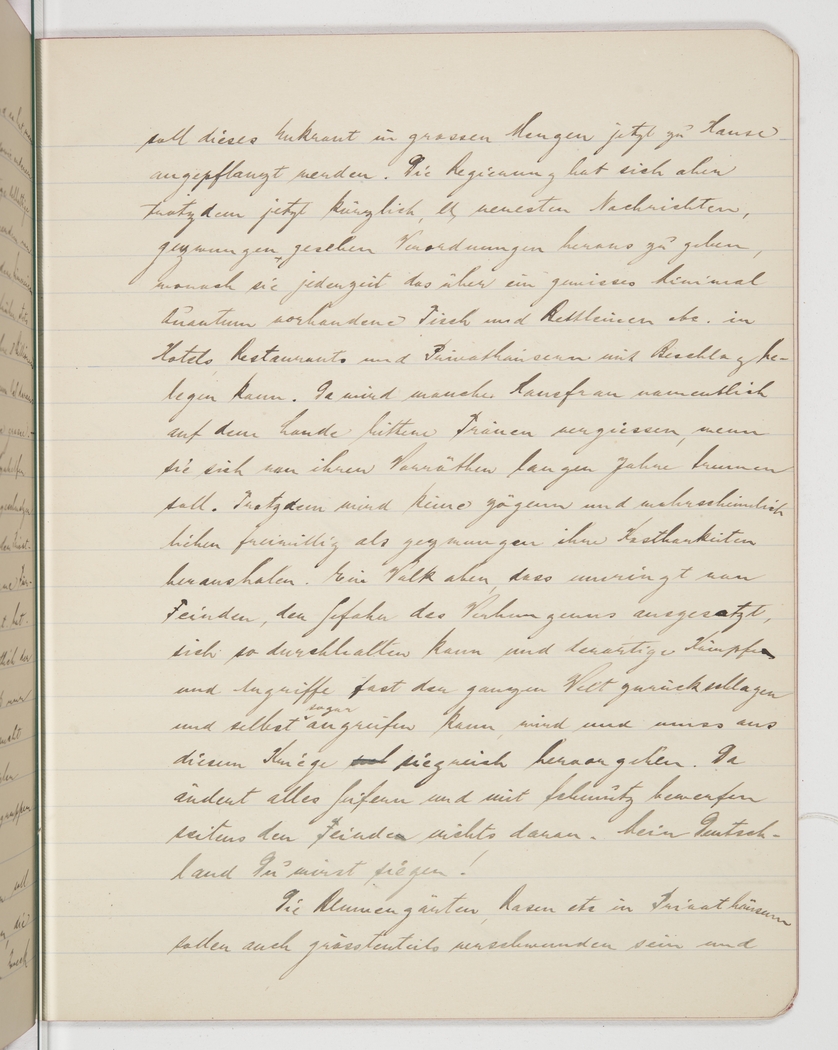 soll dieses Unkraut in grossen Mengen jetzt zu Hause
angepflanzt werden. Die Regierung hat sich aber
trotzdem jetzt kürzlich, lt. neuesten Nachrichten,
gezwungen gesehen Verordnungen heraus zu geben,
wonach sie jederzeit das über ein gewisses Minimal
Quantum vorhandene Tisch und Bettleinen etc. in
Hotels, Restaurants und Privathäusern mit Beschlag be-
legen kann. Da wird manche Hausfrau namentlich
auf dem Lande bittere Tränen vergiessen, wenn
sie sich von ihren Vorräthen langer Jahre trennen
soll. Trotzdem wird keine zögern und wahrscheinlich
lieber freiwillig als gezwungen ihre Kostbarkeiten
heraushalen. Ein Volk aber, dass umringt von
Feinden, der Gefahr des Verhungerns ausgesetzt,
sich so durchhalten kann und derartige Kämpfe
und Angriffe fast der ganzen Welt zurückschlagen
und selbst sogar angreifen kann, wird und muss aus
diesem Kriege siegreich hervorgehen. Da
ändert alles Geifern und mit Schmutz bewerfen
seitens der Feinde nichts daran. Mein Deutsch-
land Du wirst siegen!
Die Blumengärten, Rasen etc in Privathäusern
sollen auch grösstenteils verschwunden sein und